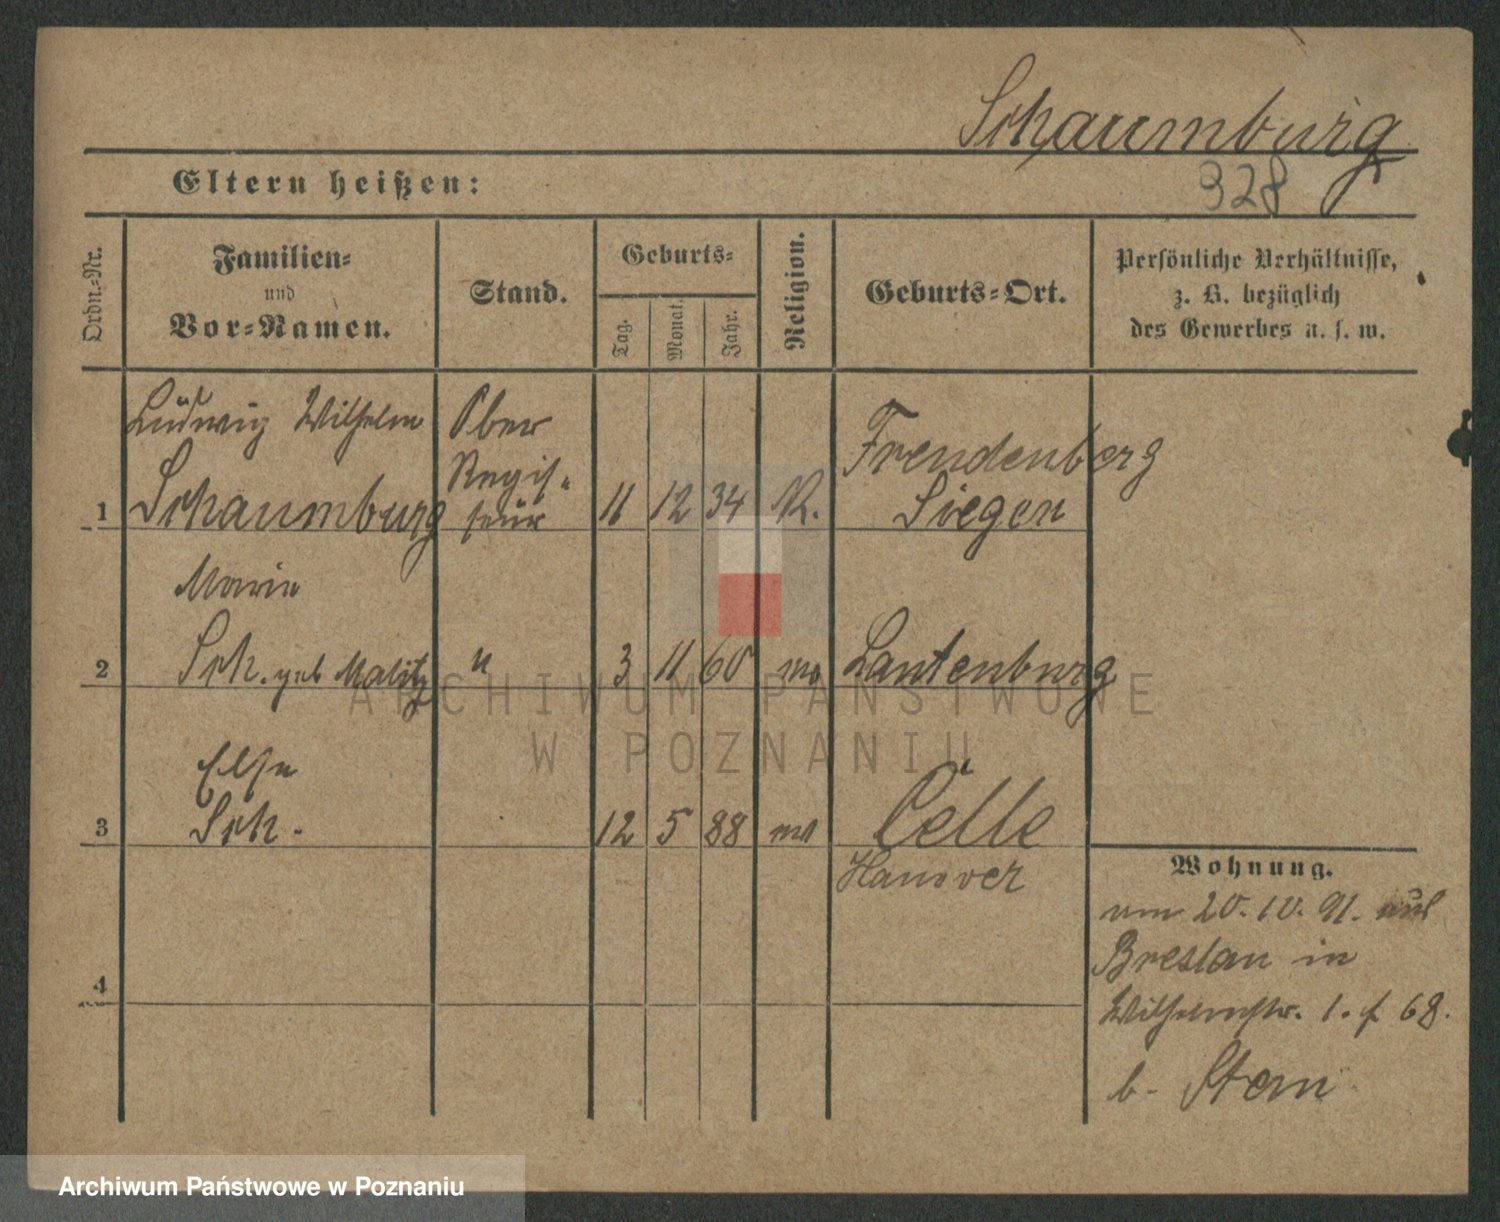 Schaumburg
Eltern heißen:
328
Ordn.-Nr.
Familien-
und
Vor-Namen.
Stand.
Geburts-
Tag.
Monat.
Jahr.
Religion.
Geburts-Ort.
Persönliche Verhältnisse,
z. B. bezüglich
des Gewerbes u. s. w.
Ludwig Wilhelm
Schaumburg
Ober
Regis-
seur
1
11 12 34 R.
Freudenberg
Siegen
Marie
2 Sch. geb Malitz " 3 11 60 Lautenburg
Else
3 Sch. 12 5 88 Celle
Hanover
4
Wohnung.
am 20. 10. 91. aus
Breslau in
Wilhelmstr. 1. f 68.
b. Stern
ARCHIWUM PAŃSTWOWE
W POZNANIU
Archiwum Państwowe w Poznaniu